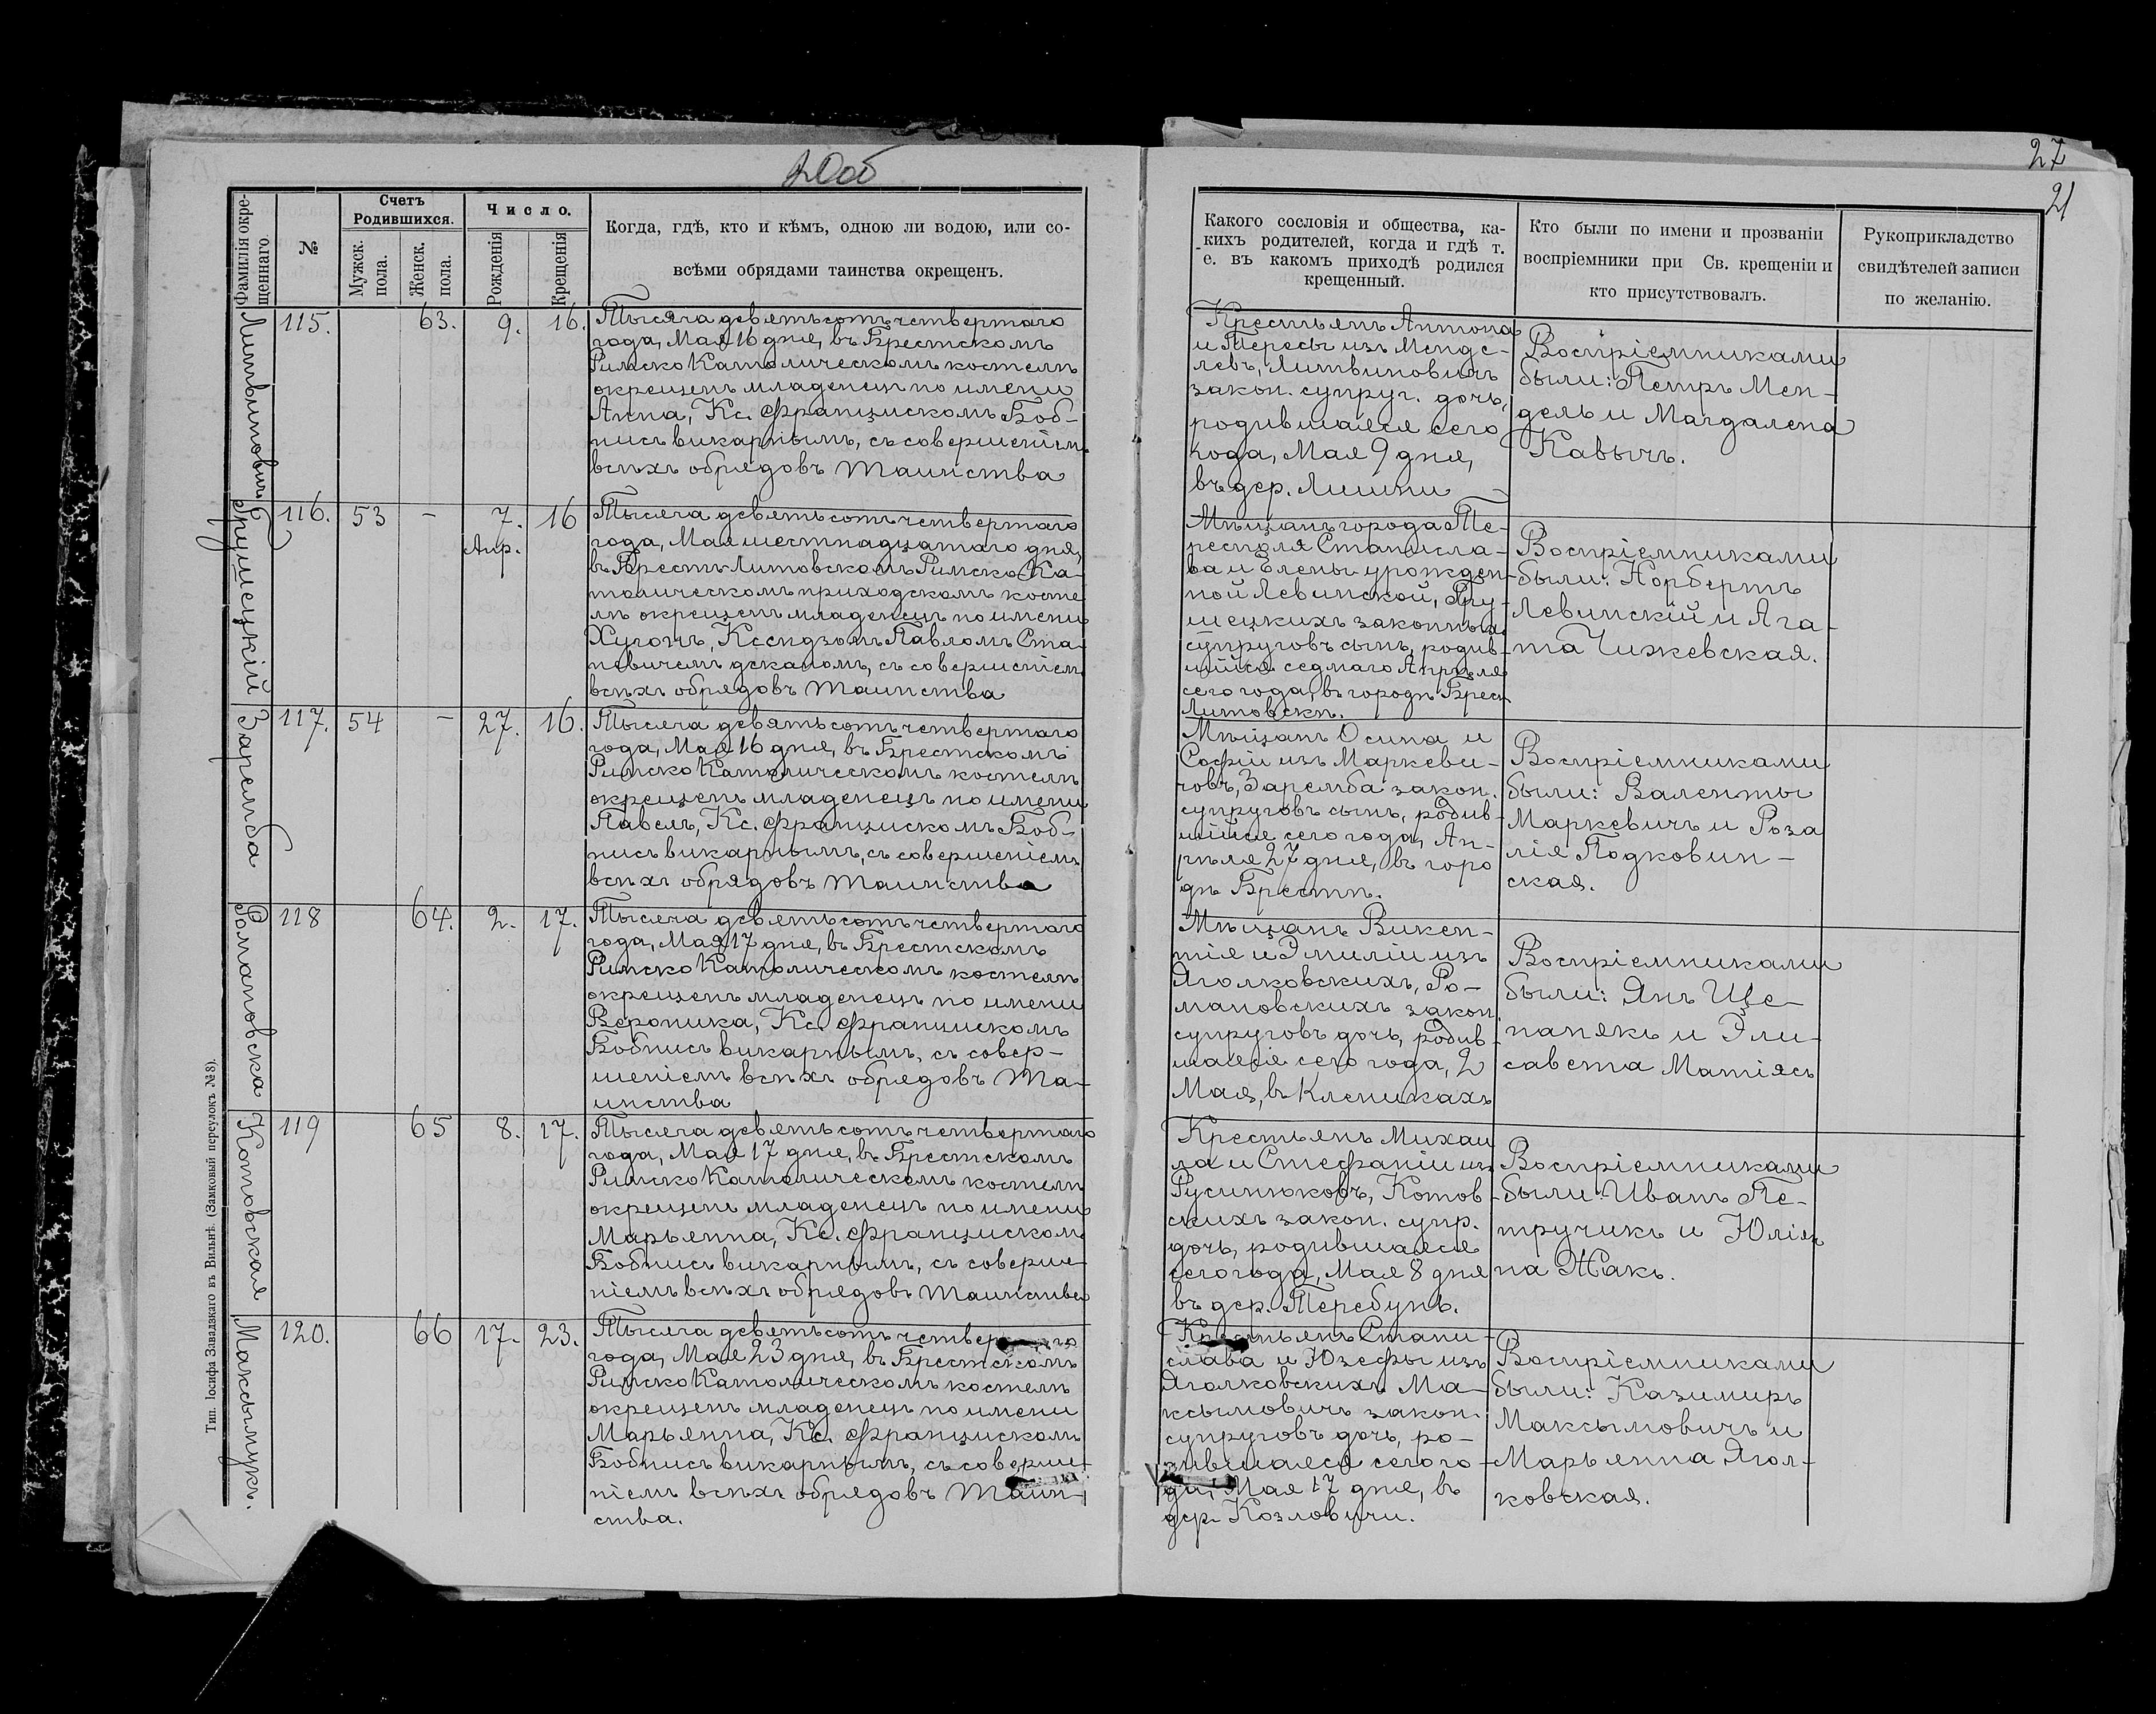 20об
27
21
Фамилія окре-
щеннаго.
№
Счетъ
Родившихся.
Мужск.
пола.
Женск.
пола.
Число.
Рожденія
Крещенія
Когда, гдѣ, кто и кѣмъ, одною ли водою, или со-
всѣми обрядами таинства окрещенъ.
Какого сословія и общества, ка-
кихъ родителей, когда и гдѣ т.
е. въ какомъ приходѣ родился
крещенный.
Кто были по имени и прозваніи
воспріемники при Св. крещеніи и
кто присутствовалъ.
Рукоприкладство
свидѣтелей записи
по желанію.
Литвиновичъ
115. 63. 9. 16.
Тысяча девятьсотъ четвертаго
года, Мая 16 дня, въ Брестскомъ
Римско Католическомъ костелѣ
окрещенъ младенецъ по имени
Анна, Кс. Францискомъ Боб-
нисъ викарнымъ, съ совершеніем
всѣхъ обрядовъ таинства
Крестьянъ Антона
и Тересы изъ Менде-
левъ, Литвиновичъ
закон. супруг. дочь,
родившаяся сего
года, Мая 9 дня,
въ дер. Лишни
Воспріемниками
были: Петръ Мен-
дель и Магдалена
Кавычъ.
Грушецкій
116. 53 – 7. 16
Апр.
Тысяча девятьсотъ четвертаго
года, Мая шестнадцатаго дня,
въ Брестъ-Литовскомъ Римско-Ка-
толическомъ приходскомъ косте
лѣ окрещенъ младенецъ по имени
Хугонъ, Ксендзомъ Павломъ Ста-
невичемъ деканомъ, съ совершеніем
всѣхъ обрядовъ таинства
Мѣщанъ города Те-
респоля Станисла-
ва и Елены урожден-
ной Левинской, Гру-
шецкихъ законныхъ
супруговъ сынъ, родив-
шійся седмаго Апрѣля
сего года, въ городѣ Брест
Литовскѣ.
Воспріемниками
были: Норбертъ
Левинскій и Ага-
та Чижевская.
Заремба
117. 54 – 27. 16.
Тысяча девятьсотъ четвертаго
года, Мая 16 дня, въ Брестскомъ
Римско Католическомъ костелѣ
окрещенъ младенецъ по имени
Павелъ, Кс. Францискомъ Боб-
нисъ викарнымъ, съ совершеніемъ
всѣхъ обрядовъ таинства
Мѣщанъ Осипа и
Софіи изъ Маркеви-
човъ, Заремба закон.
супруговъ сынъ, родив-
шійся сего года, Ап-
рѣля 27 дня, въ горо
дѣ Брестѣ.
Воспріемниками
были: Валенты
Маркевичъ и Роза
лія Подковин-
ская.
Романовска
118 64. 2. 17.
Тысяча девятьсотъ четвертаго
года, Мая 17 дня, въ Брестскомъ
Римско Католическомъ костелѣ
окрещенъ младенецъ по имени
Вероника, Кс. Францискомъ
Бобнисъ викарнымъ, съ совер-
шеніемъ всѣхъ обрядовъ та-
инства
Мѣщанъ Викен-
тія и Эмиліи изъ
Яголковскихъ, Ро-
мановскихъ закон.
супруговъ дочь, родив-
шаяся сего года, 2
Мая, въ Клейникахъ
Воспріемниками
были: Янъ Ще-
панякъ и Эли-
савета Матіясъ
Котовская
119 65 8. 17.
Тысяча девятьсотъ четвертаго
года, Мая 17 дня, въ Брестскомъ
Римско Католическомъ костелѣ
окрещенъ младенецъ по имени
Марьянна, Кс. Францискомъ
Бобнисъ викарнымъ, съ соверше-
ніемъ всѣхъ обрядовъ таинства
Крестьянъ Михаи
ла и Стефаніи изъ
Русинюковъ, Котов-
скихъ закон. супр.
дочь, родившаяся
сего года, Мая 8 дня
въ дер. Теребунь.
Воспріемниками
были: Иванъ Пе-
тручикъ и Юлія
на Жакъ.
Максымукъ.
120. 66 17. 23.
Тысяча девятьсотъ четвертаго
года, Мая 23 дня, въ Брестскомъ
Римско Католическомъ костелѣ
окрещенъ младенецъ по имени
Марьянна, Кс. Францискомъ
Бобнисъ викарнымъ, съ соверше-
ніемъ всѣхъ обрядовъ таин-
ства.
Крестьянъ Стани-
слава и Юзефы изъ
Яголковскихъ Ма-
ксымовичъ закон.
супруговъ дочь, ро-
дившаяся сего го-
да, Мая 17 дня, въ
дер. Козловичи.
Воспріемниками
были: Казимиръ
Максымовичъ и
Марьянна Ягол-
ковская.
Тип. Іосифа Завадзкаго въ Вильнѣ. (Замковый переулокъ № 8).